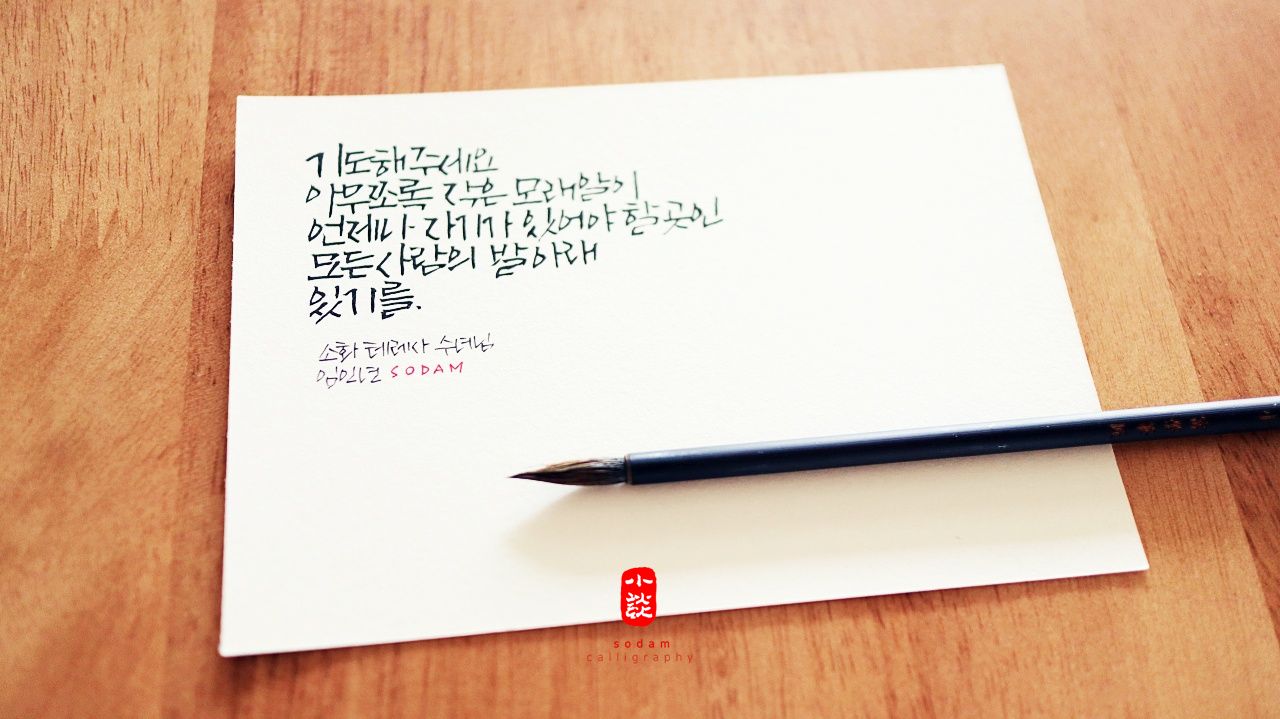 기도해주세요
아무쪼록 작은 모래알이
언제나 자기가 있어야 할 곳인
모든 사람의 발 아래
있기를.
소화 테레사 수녀님
임인년 SODAM
小
談
sodam
calligraphy